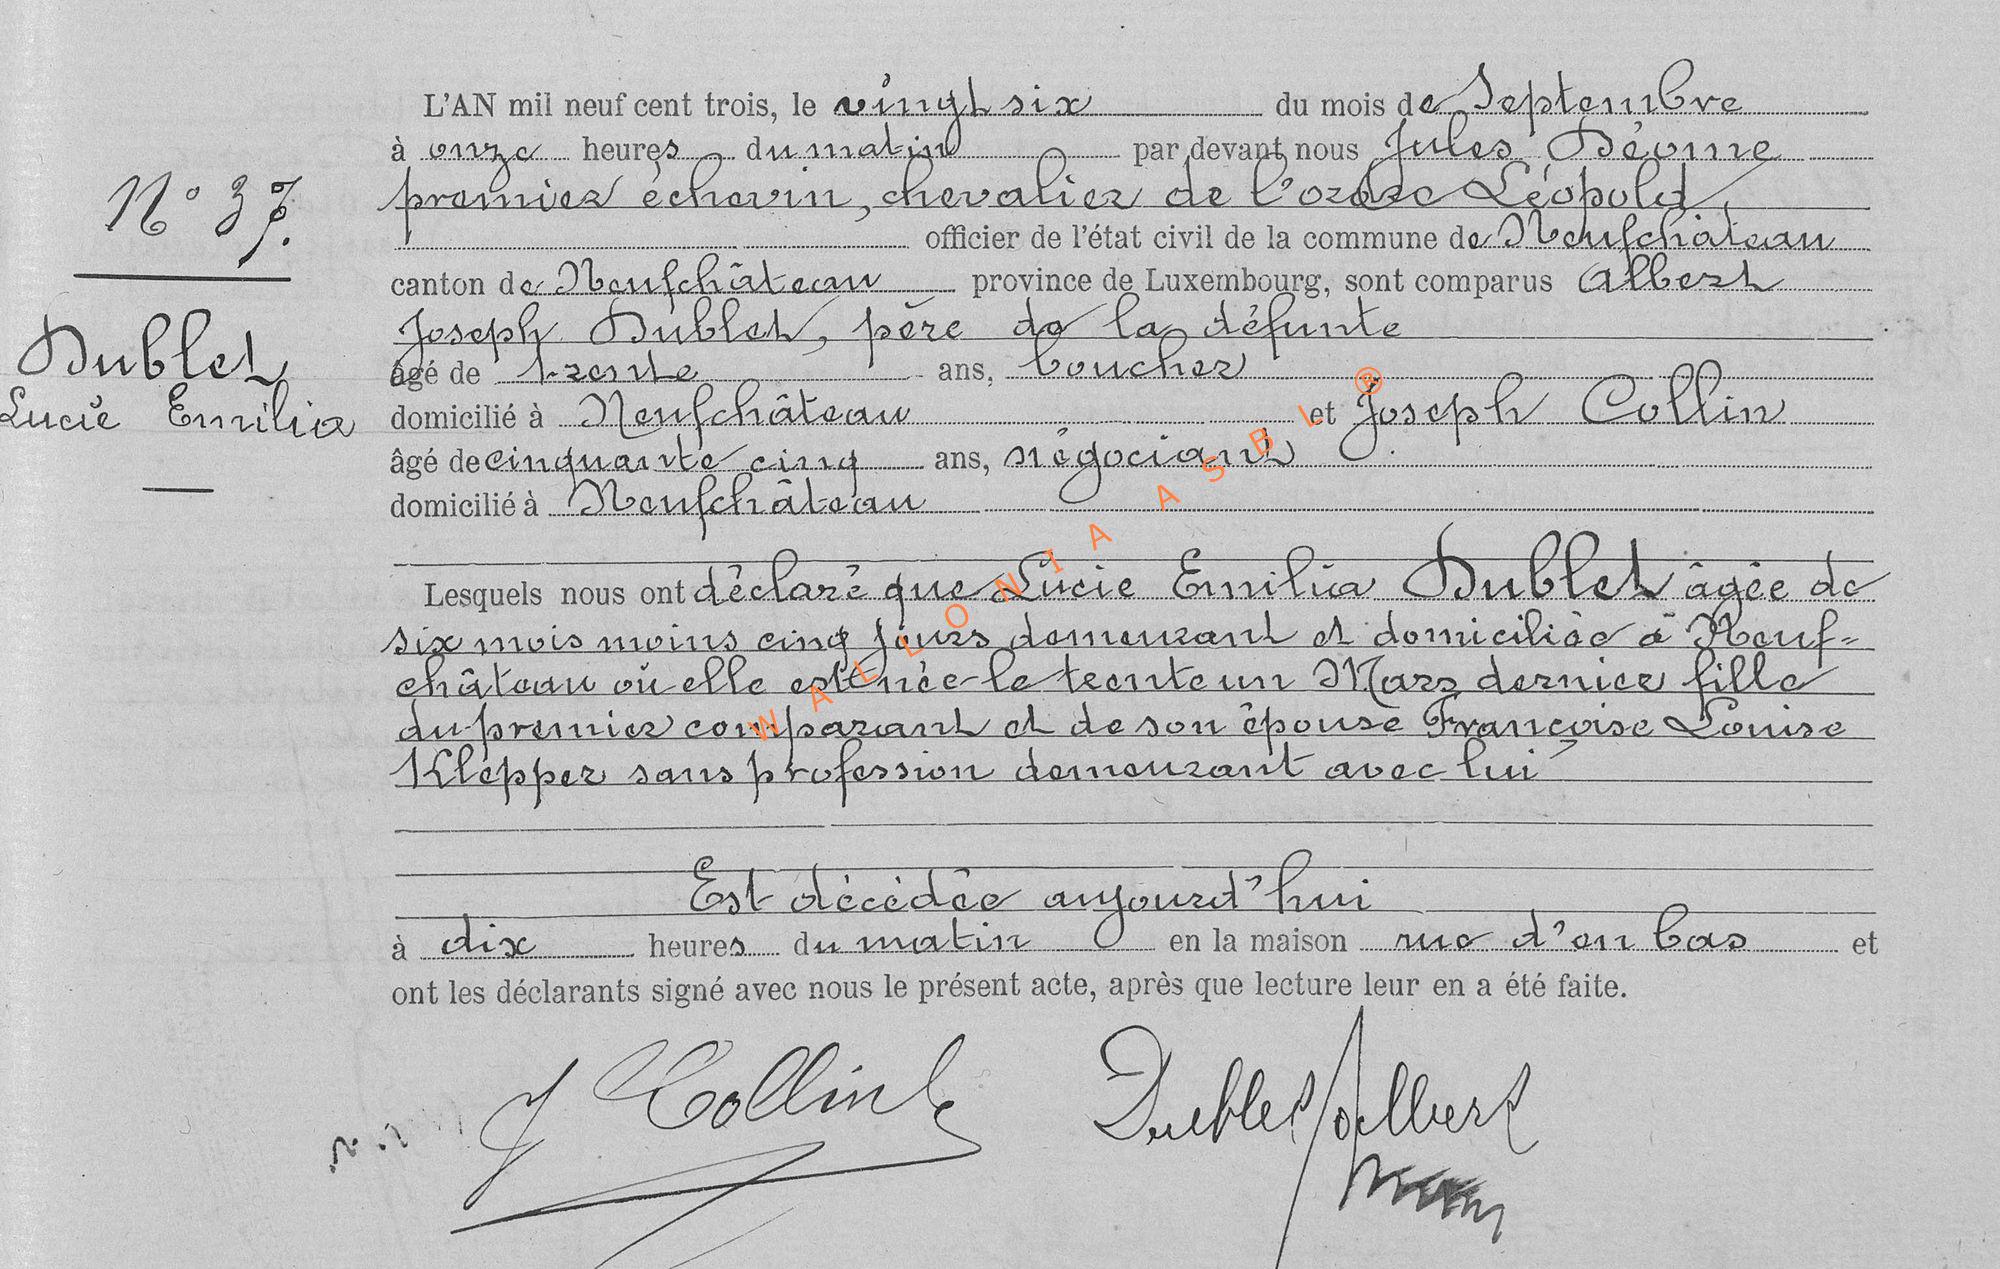 L'AN mil neuf cent trois, le vingt six du mois de Septembre
à onze heures du matin par devant nous Jules Déome
premier échevin, chevalier de l'ordre Léopold
officier de l'état civil de la commune de Neufchâteau
canton de Neufchâteau province de Luxembourg, sont comparus Albert
Joseph Dublet, père de la défunte
âgé de trente ans, boucher
domicilié à Neufchâteau et Joseph Collin
âgé de cinquante cinq ans, négociant
domicilié à Neufchâteau
N° 37.
Dublet
Lucie Emilia
Lesquels nous ont déclaré que Lucie Emilia Dublet âgée de
six mois moins cinq jours demeurant et domiciliée à Neuf=
château où elle est née le trente un Mars dernier fille
du premier comparant et de son épouse Françoise Louise
Klepper sans profession demeurant avec lui
Est décédée aujourd'hui
à dix heures du matin en la maison rue d'en bas et
ont les déclarants signé avec nous le présent acte, après que lecture leur en a été faite.
J Collin Dublet Albert
WALLONIA ASBL ®